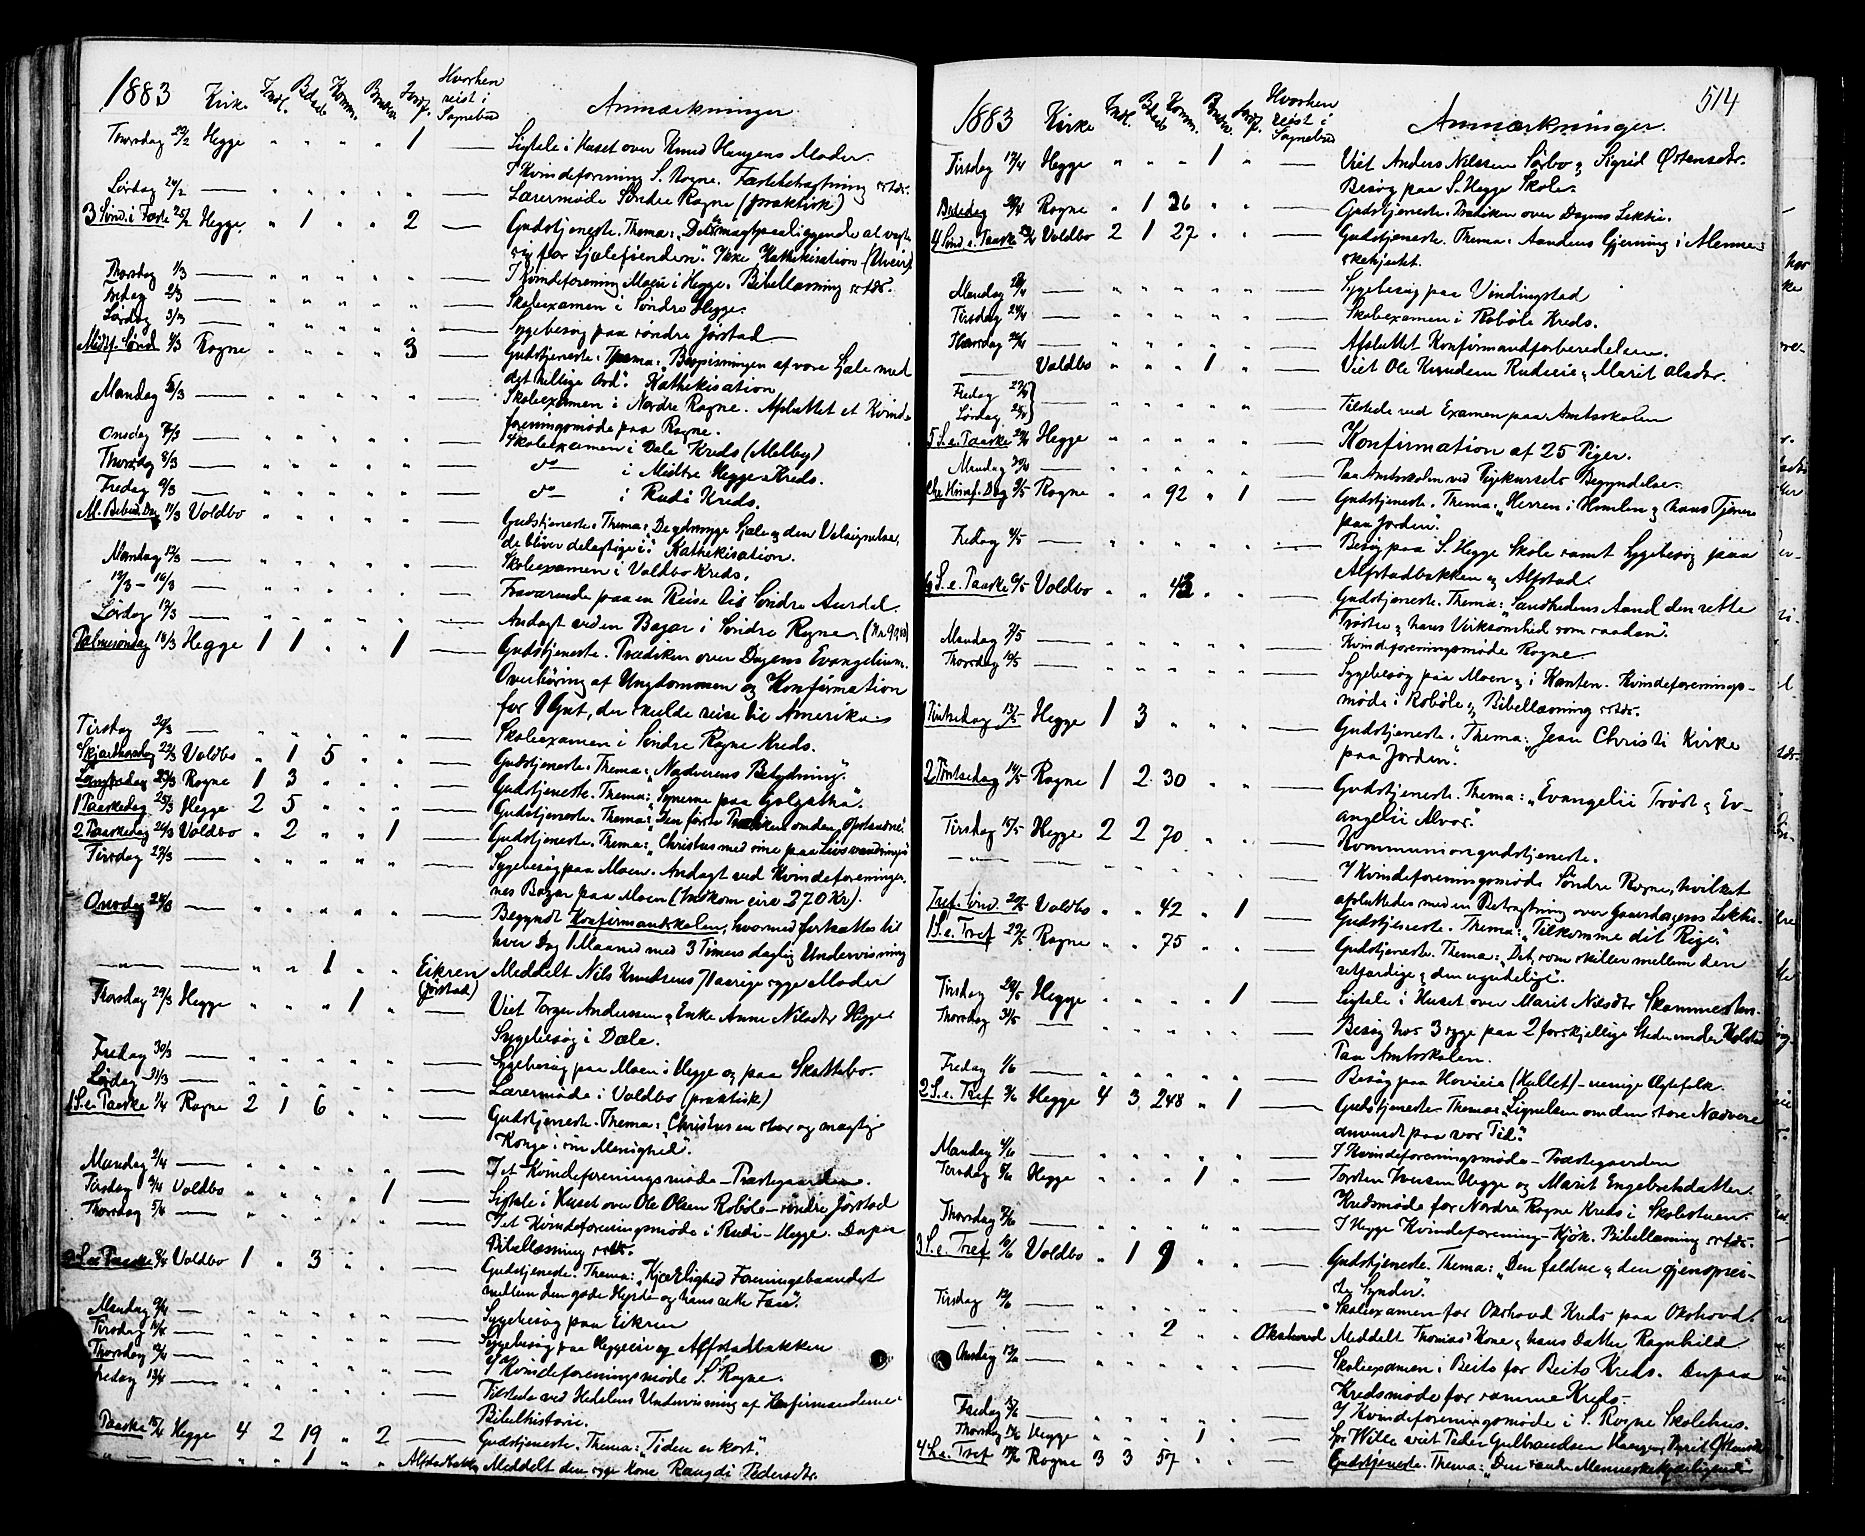 1883 Kirke Indl. Daab Komm. Brudev. Jordf. Hvorhen reist i Sognebud Anmærkninger
Thorsdag 22/2 Hegge " " " " 1 — Ligtale i Huset over Knud Haugens Moder.
I Kvindeforening S. Rogne.
Lørdag 24/2 — " " " " " — Lærermøde Søndre Rogne (praktisk)
3 Sønd. i Faste 25/2 Hegge " 1 " " 2 — Gudstjeneste. Thema: "Det magtpaaliggende at vogte
sig for Sjælefienden". Ikke Kathekisation (Uveir).
Thorsdag 1/3 — " " " " " — I Kvindeforening Moen i Hegge. Bibellæsning
Fredag 2/3 — " " " " " — Skoleexamen i Søndre Hegge.
Lørdag 3/3 — " " " " " — Sygebesøg paa søndre Jørstad
Midtf. Sønd 4/3 Rogne " " " " 3 — Gudstjeneste. Thema: "Bespisningen af vore Sjæle med
det hellige Ord". Kathekisation
Mandag 5/3 — " " " " " — Skoleexamen i Nordre Rogne. Afsluttet et Kvinde-
foreningsmøde paa Rogne.
Onsdag 7/3 — " " " " " — Skoleexamen i Dale Kreds (Melby)
Thorsdag 8/3 — " " " " " — do — i Midtre Hegge Kreds.
Fredag 9/3 — " " " " " — do — i Rudi Kreds.
M. Bebud. Dag 11/3 Voldbo " " " " " — Gudstjeneste. Thema: "De ydmyge Sjæle og den Velsignelse,
de bliver delagtige i". Kathekisation.
Mandag 12/3 — " " " " " — Skoleexamen i Voldbo Kreds.
13/3 – 16/3 — " " " " " — Fraværende paa en Reise til Søndre Aurdal.
Lørdag 17/3 — " " " " " — Andagt ved en Bazar i Søndre Rogne
Palmesøndag 18/3 Hegge 1 1 " " 1 — Gudstjeneste. Prædiken over Dagens Evangelium.
Overhøring af Ungdommen og Konfirmation
for 1 Gut, der skulde reise til Amerika
Tirsdag 20/3 — " " " " " — Skoleexamen i Søndre Rogne Kreds.
Skjærthorsdag 22/3 Voldbo " 1 5 " " — Gudstjeneste. Thema: "Nadverens Betydning".
Langfredag 23/3 Rogne 1 3 " " " — Gudstjeneste. Thema: "Synerne paa Golgatha".
1 Paaskedag 25/3 Hegge 2 5 " " " — Gudstjeneste. Thema: "Den første Prædiken om den Opstandne".
2 Paaskedag 26/3 Voldbo " 2 " " 1 — Gudstjeneste. Thema: "Christus med sine paa Livsvandringen"
Tirsdag 27/3 — " " " " " — Sygebesøg paa Moen. Andagt ved Kvindeforeninger-
nes Bazar paa Moen (Indkom circa 270 Kr).
Onsdag 28/3 " " " " " — Begyndt Konfirmandskolen, hvormed fortsattes til
hver Dag 1 Maaned med 3 Timers daglig Undervisning
— " — — " " 1 " " Eikren (Jørstad) Meddelt Nils Knudsens 71 aarige syge Moder
Thorsdag 29/3 Hegge " " " 1 " — Viet Torger Anderssen & Enke Anne Nilsdtr Hegge
Sygebesøg i Dale.
Fredag 30/3 — " " " " " — Sygebesøg paa Moen i Hegge og paa Skattebo.
Lørdag 31/3 — " " " " " — Lærermøde i Voldbo (praktisk)
1 S. e. Paaske 1/4 Rogne 2 1 6 " " — Gudstjeneste. Thema: "Christus en stor og mægtig
Konge i sin Menighed".
Mandag 2/4 — " " " " " — I et Kvindeforeningsmøde – Præstegaarden.
Tirsdag 3/4 Voldbo " " " " 1 — Ligtale i Huset over Ole Olsen Robøle – søndre Jørstad
Thorsdag 5/4 — " " " " " — I et Kvindeforeningsmøde i Rudi – Hegge. Derpaa
Bibellæsning
2 S. e. Paaske 8/4 Voldbo 1 " 3 " " — Gudstjeneste. Thema: "Kjærlighed Foreningsbaandet
mellem den gode Hyrde og hans rette Faar".
Mandag 9/4 — " " " " " — Sygebesøg paa Eikren
Tirsdag 10/4 — " " " " " — Sygebesøg paa Heggeeie og Alfstadbakken
Thorsdag 12/4 — " " " " " — I Kvindeforeningsmøde S. Rogne.
Fredag 13/4 — " " " " " — Tilstede ved Hedelens Undervisning af Konfirmanderne
Bibelhistorie.
Paaske 15/4 Hegge 4 2 19 " 2 — Gudstjeneste. Thema: "Tiden er kort".
" — — " " 1 " " Alfstadbakken Meddelt den syge Kone Rangdi Pedersdtr.
514
1883 Kirke Indl. Daab Komm. Brudev. Jordf. Hvorhen reist i Sognebud Anmærkninger.
Tirsdag 17/4 Hegge " " " 1 " — Viet Anders Nilssen Sørbo & Sigrid Østensdtr.
Besøg paa S. Hegge Skole.
Bededag 20/4 Rogne " 1 26 " " — Gudstjeneste. Prædiken over Dagens Lektie.
4 Sønd. e. Paaske 22/4 Voldbo 2 1 27 " " — Gudstjeneste. Thema: Aandens Gjerning i Menne-
skehjertet.
Mandag 23/4 — " " " " " — Sygebesøg paa Vindingstad
Tirsdag 24/4 — " " " " " — Skoleexamen i Robøle Kreds.
Thorsdag 26/4 — " " " " " — Afsluttet Konfirmandforberedelsen.
— Voldbo " " " 1 " — Viet Ole Knudsen Rudieie & Marit Olsdtr.
Fredag 27/4
Lørdag 28/4 } — " " " " " — Tilstede ved Examen paa Amtsskolen
5 S. e. Paaske 29/4 Hegge " " " " " — Konfirmation af 25 Piger.
Mandag 30/4 — " " " " " — Paa Amtsskolen ved Pigekursets Begyndelse.
Chr. Himf. Dag 3/5 Rogne " " 92 " 1 — Gudstjeneste. Thema: "Herren i Himlen & hans Tjener
paa Jorden".
Fredag 4/5 — " " " " " — Besøg paa S. Hegge Skole samt Sygebesøg paa
Alfstadbakken & Alfstad.
6 S. e. Paaske 6/5 Voldbo " " 43 " " — Gudstjeneste. Thema: "Sandhedens Aand den rette
Trøster & hans Virksomhed som saadan".
Mandag 7/5 — " " " " " — Kvindeforeningsmøde Rogne
Thorsdag 10/5 — " " " " " — Sygebesøg paa Moen & i Kanten. Kvindeforenings-
møde i Robøle & Bibellæsning
1 Pintsedag 13/5 Hegge 1 3 " " " — Gudstjeneste. Thema: "Jesu Christi Kirke
paa Jorden".
2 Pintsedag 14/5 Rogne 1 2 30 " " — Gudstjeneste. Thema: "Evangelii Trøst & Ev-
angelii Alvor".
Tirsdag 15/5 Hegge 2 2 70 " " — Kommuniongudstjeneste.
— " — — " " " " " — I Kvindeforeningsmøde Søndre Rogne, hvilket
afsluttedes med en Betragtning over Gaarsdagens Lektie.
Tref. Sønd. 20/5 Voldbo " " 42 " 1 — Gudstjeneste. Thema: "Tilkomme dit Rige".
1 S. e. Tref 27/5 Rogne " " 75 " " — Gudstjeneste. Thema: "Det, som skiller mellem den
retfærdige & den ugudelige".
Tirsdag 29/5 Hegge " " " " 1 — Ligtale i Huset over Marit Nilsdtr
Thorsdag 31/5 — " " " " " — Besøg hos 3 syge paa 2 forskjellige Steder under
Paa Amtsskolen.
Fredag 1/6 — " " " " " — Besøg paa Hovieie (Kullet) – uenige Ægtefolk.
2 S. e. Tref 3/6 Hegge 4 3 248 " 1 — Gudstjeneste. Thema: "Lignelsen om den store Nadvere
anvendt paa vor Tid".
Mandag 4/6 — " " " " " — I Kvindeforeningsmøde – Præstegaarden
Tirsdag 5/6 Hegge " " " 1 " — Torsten Knutsen Hegge og Marit Engebretsdatter.
Kredsmøde for Nordre Rogne Kreds i Skolestuen.
Thorsdag 7/6 — " " " " " — I Hegge Kvindeforening – Kjøk. Bibellæsning
3 S. e. Tref 10/6 Voldbo " 1 9 " " — Gudstjeneste. Thema: "Den faldne & den gjenoprei-
ste Synder".
Tirsdag 12/6 — " " " " " — Skoleexamen for Okshovd Kreds paa Okshovd.
— " " 2 " " Okshovd Meddelt Thomas' Kone & hans Datter Ragnhild
Onsdag 13/6 — " " " " " — Skoleexamen i Beito for Beito Kreds. Derpaa
Kredsmøde for samme Kreds.
Fredag 15/6 — " " " " " — I Kvindeforeningsmøde i S. Rogne Skolehus.
Hegge " " " 1 " — viet Peder Gulbrandsen
4 S. e. Tref 17/6 Rogne 3 3 57 " " — Gudstjeneste. Thema: "Den sande